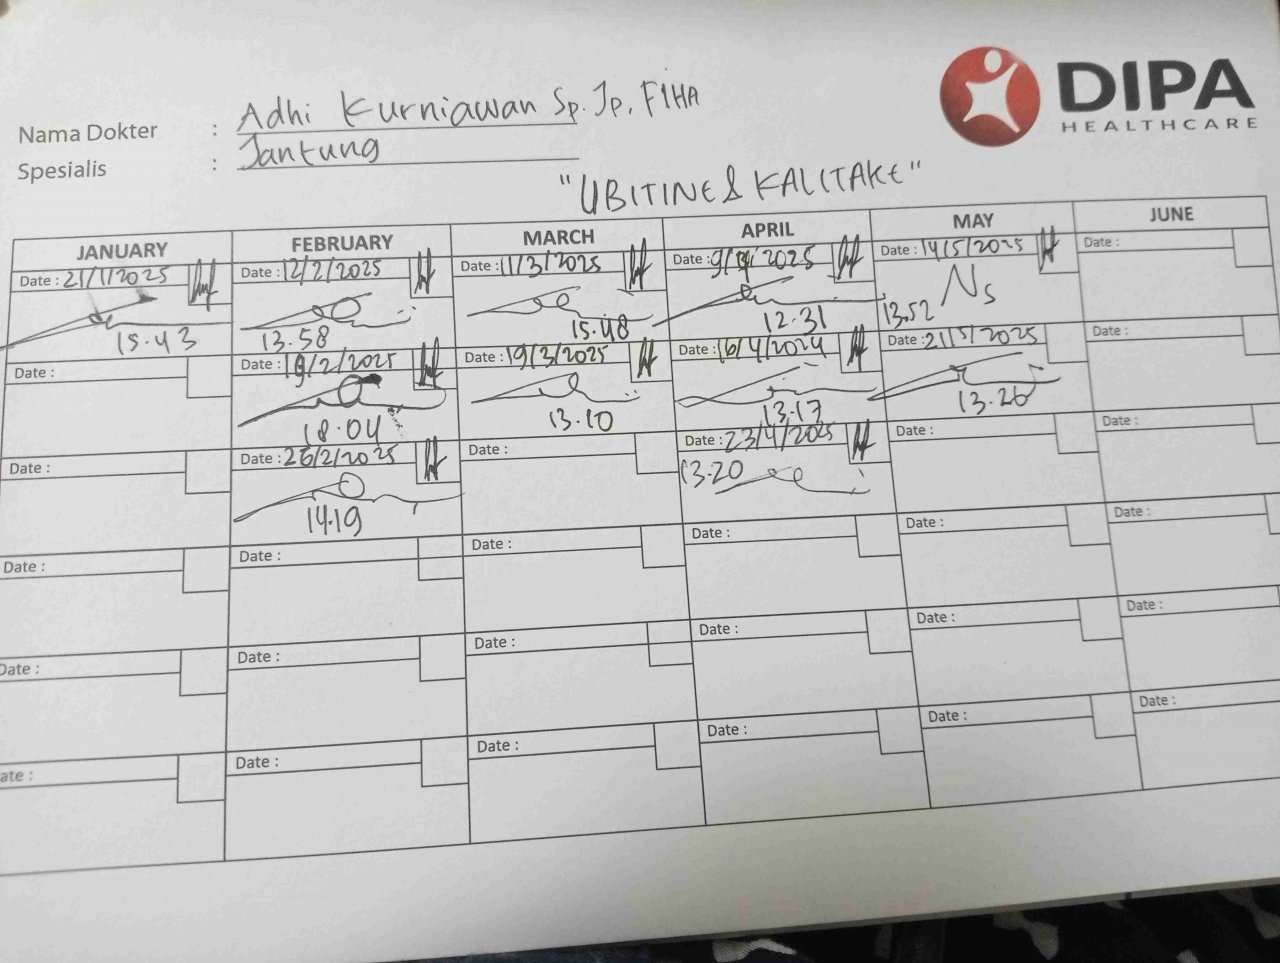 DIPA
HEALTHCARE
Nama Dokter : Adhi Kurniawan Sp. Jp, FIHA
Spesialis : Jantung
"UBITINE & KALITAKE"
JANUARY FEBRUARY MARCH APRIL MAY JUNE
Date : 21/1/2025 Date : 12/2/2025 Date : 11/3/2025 Date : 9/4/2025 Date : 14/5/2025 Date :
15.43 13.58 15.48 12.31 13.52 Ns
Date : Date : 19/2/2025 Date : 19/3/2025 Date : 16/4/2024 Date : 21/5/2025 Date :
18.04 13.10 13.17 13.26
Date : Date : 26/2/2025 Date : Date : 23/4/2025 Date : Date :
14.19 13.20
Date : Date : Date : Date : Date : Date :
Date : Date : Date : Date : Date : Date :
ate : Date : Date : Date : Date : Date :